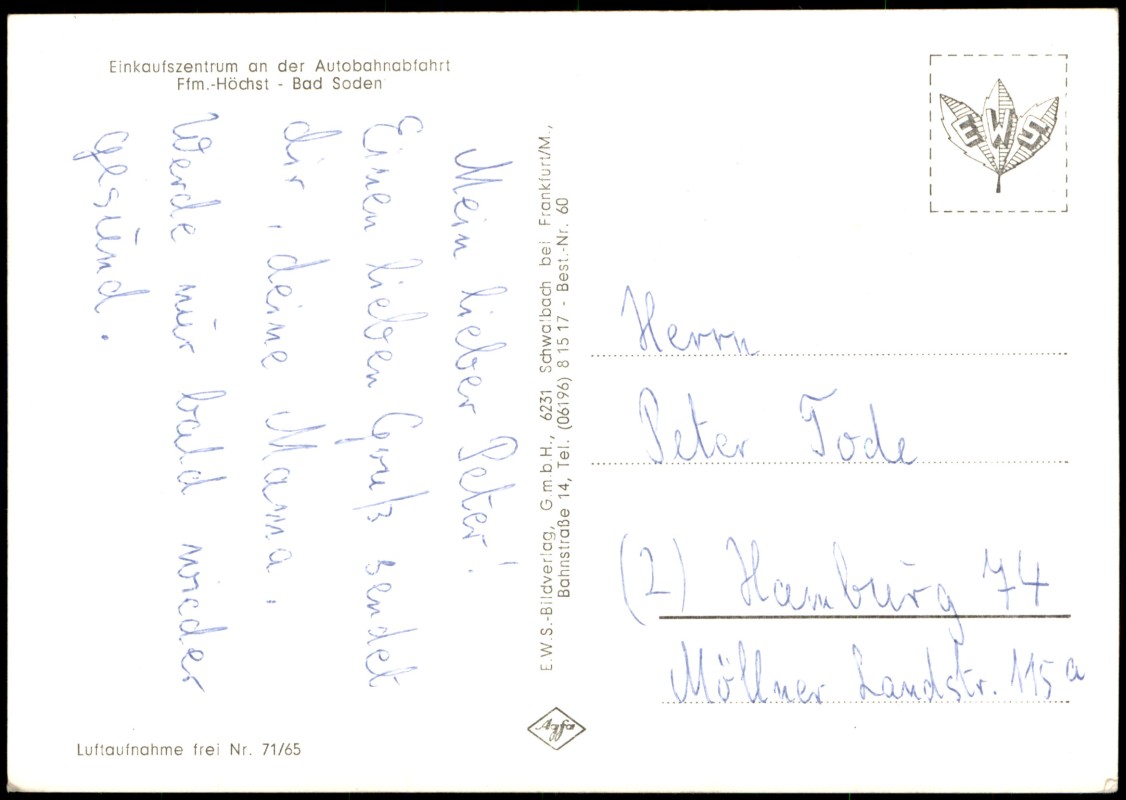 Einkaufszentrum an der Autobahnabfahrt
Ffm.-Höchst - Bad Soden
Mein lieber Peter!
Einen lieben Gruß sendet
dir, deine Mama.
Werde nur bald wieder
gesund.
E.W.S.-Bildverlag, G.m.b.H., 6231 Schwalbach bei Frankfurt/M.,
Bahnstraße 14, Tel. (06196) 81517 - Best.-Nr. 60
EWS
Herrn
Peter Tode
(2) Hamburg 74
Möllner Landstr. 115a
Agfa
Luftaufnahme frei Nr. 71/65